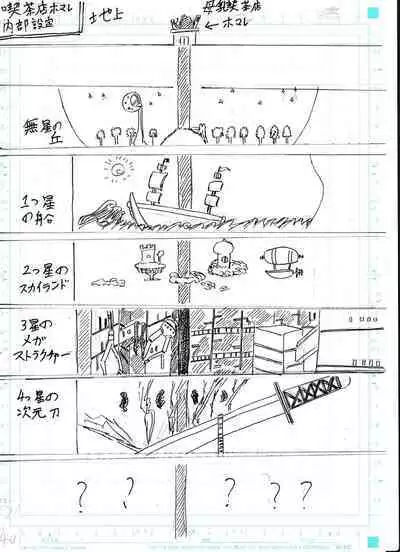 喫茶店ホマレ
内部設定
土地上
母乳喫茶店
ホマレ
無星の
丘
1つ星
の船
2つ星の
スカイランド
3星の
メガ
ストラクチャー
4つ星の
次元刀
? ? ? ? ?